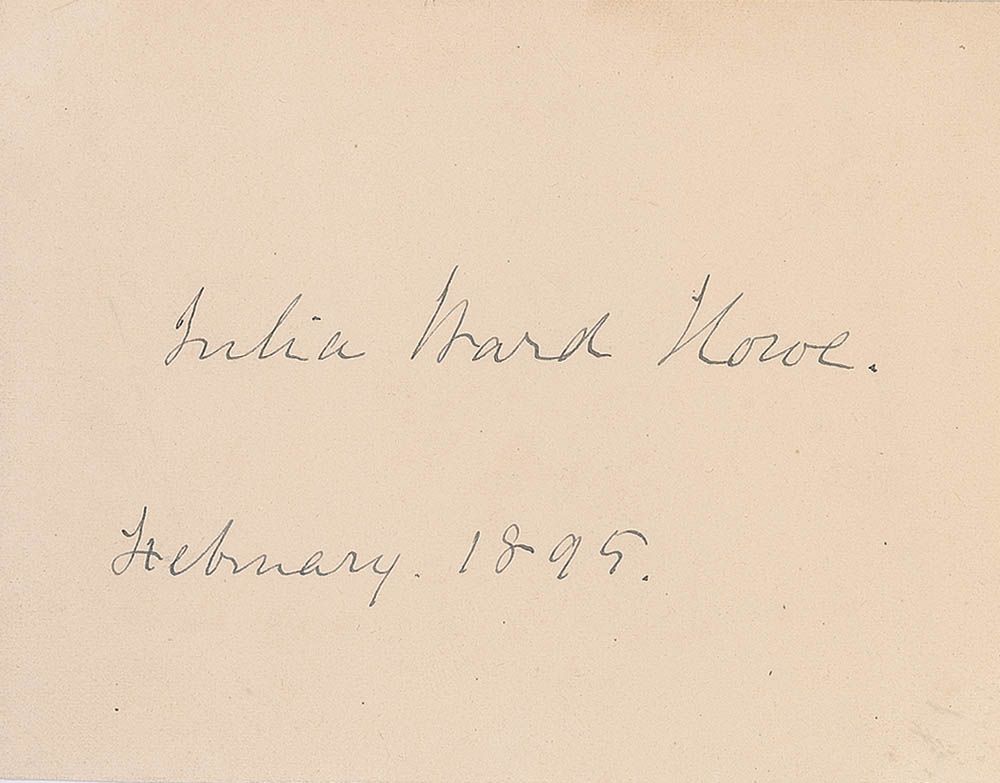 Julia Ward Howe.
February. 1895.